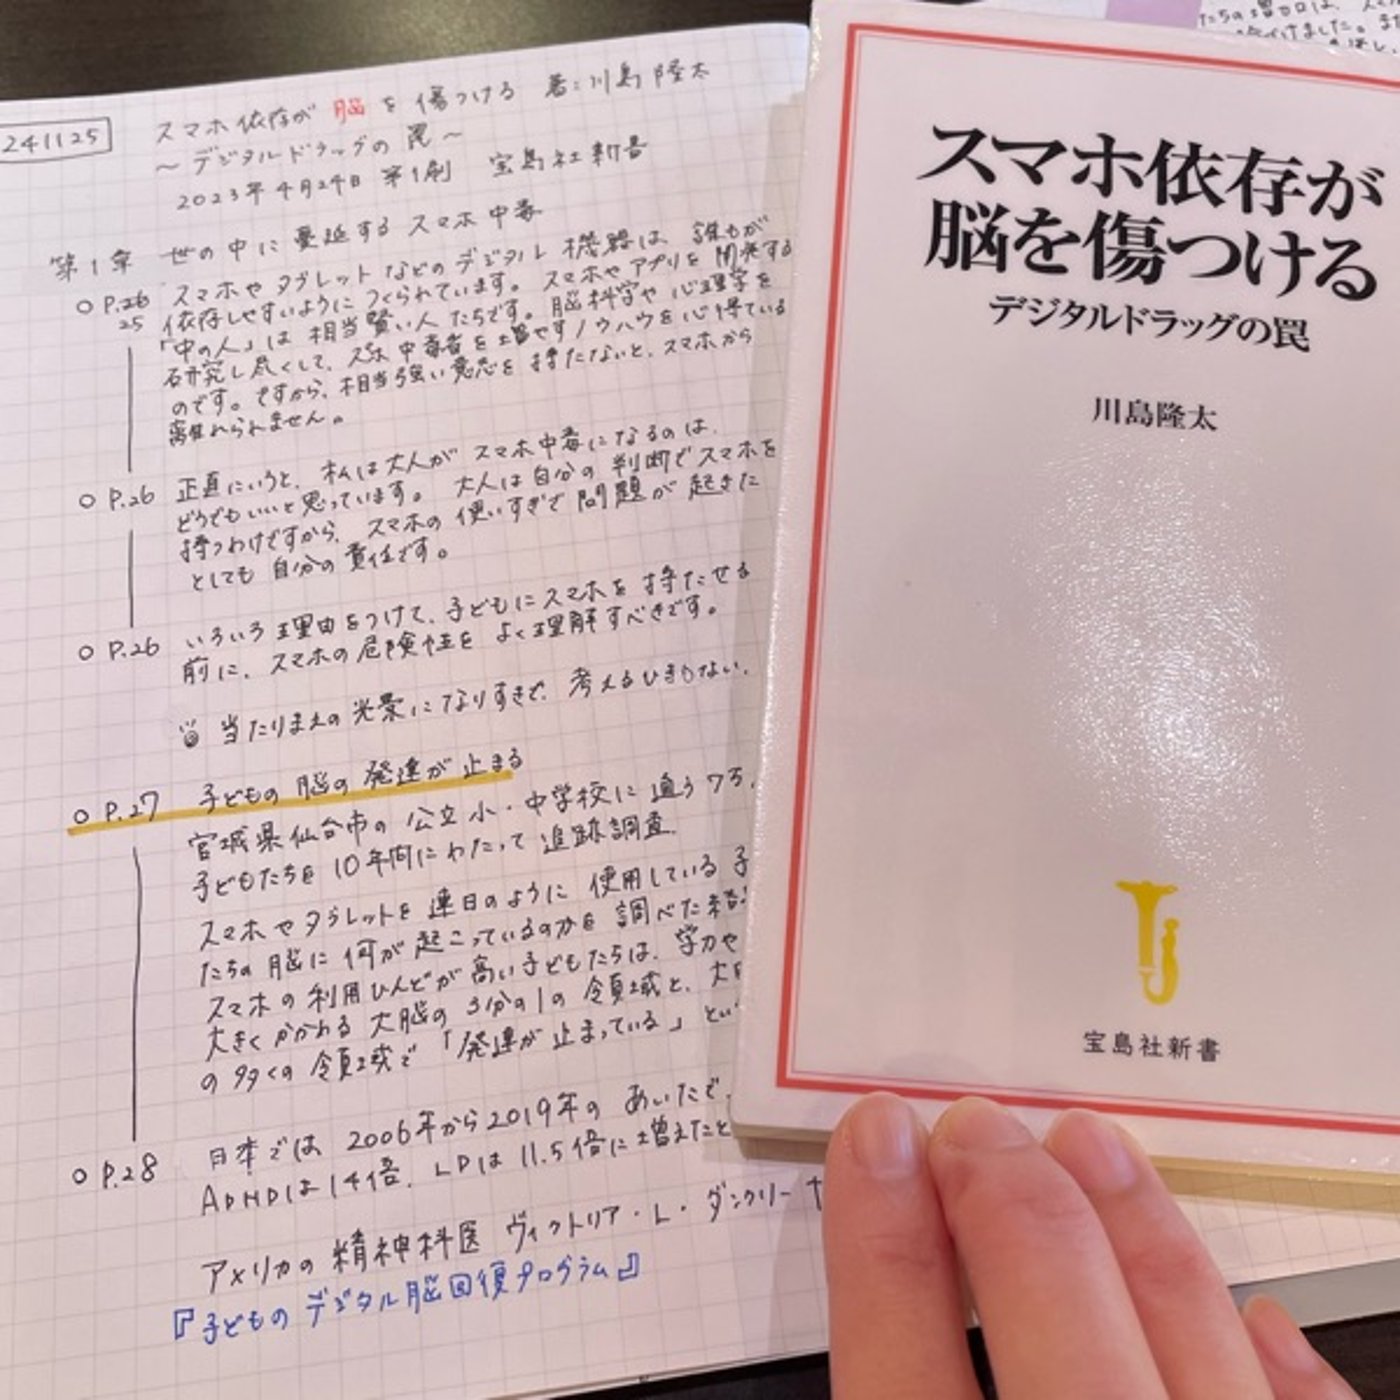 241125
スマホ依存が 脳を 傷つける 著:川島隆太
～デジタルドラッグの罠～
2023年4月24日 第1刷 宝島社新書
第1章 世の中に蔓延する スマホ中毒
○ P.26 スマホやタブレットなどのデジタル機器は、誰もが
25 依存しやすいようにつくられています。スマホやアプリを開発する
「中の人」は相当賢い人たちです。脳科学や心理学を
研究し尽くして、スマホ中毒者を増やすノウハウを心得ている
のです。ですから、相当強い意志を持たないと、スマホから
離れられません。
○ P.26 正直にいうと、私は大人がスマホ中毒になるのは、
どうでもいいと思っています。大人は自分の判断でスマホを
持つわけですから、スマホの使いすぎで問題が起きた
としても自分の責任です。
○ P.26 いろいろ理由をつけて、子どもにスマホを持たせる
前に、スマホの危険性をよく理解すべきです。
当たりまえの光景になりすぎで、考えるひまもない、
○ P.27 子どもの脳の発達が止まる
宮城県仙台市の公立小・中学校に通う7万、
子どもたちを10年間にわたって追跡調査
スマホやタブレットを連日のように使用している子
たちの脳に何が起こっているのかを調べた結
スマホの利用ひんどが高い子どもたちは、学力や
大きくかかわる大脳の3分の1の領域と、大
の多くの領域で「発達が止まっている」とい
○ P.28 日本では2006年から2019年のあいだで、
ADHDは14倍、LDは11.5倍に増えたと
アメリカの精神科医 ヴィクトリア・L・ダンクリー
『子どものデジタル脳回復プログラム』
スマホ依存が
脳を傷つける
デジタルドラッグの罠
川島隆太
宝島社新書